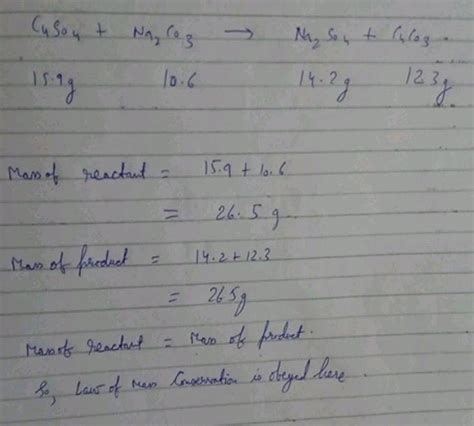 CuSo4 + Na2Co3 → Na2So4 + CuCo3.
15.9g 10.6 14.2g 12.3g
Mass of reactant = 15.9 + 10.6
= 26.5 g
Mass of product = 14.2 + 12.3
= 26.5g
Mass of reactant = Mass of product.
So, Law of Mass Conservation is obeyed here.